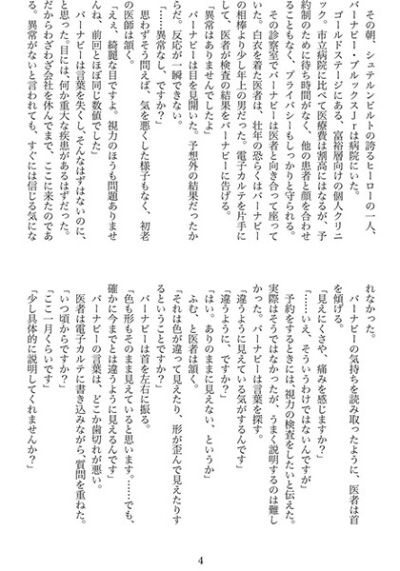 その朝、シュテルンビルトの誇るヒーローの一人、
バーナビー・ブルックスJrは病院にいた。
ゴールドステージにある、富裕層向けの個人クリニ
ック。市立病院に比べて医療費は割高にはなるが、予
約制のために待ち時間がなく、他の患者と顔を合わせ
ることもなく、プライバシーもしっかりと守られる。
その診察室でバーナビーは医者と向き合って座って
いた。白衣を着た医者は、壮年の恐らくはバーナビー
の相棒より少し年上の男だった。電子カルテを片手に
して、医者が検査の結果をバーナビーに告げる。
「異常はありませんでしたよ」
バーナビーは目を見開いた。予想外の結果だったか
らだ。反応が一瞬できない。
「……異常なし、ですか?」
思わずそう問えば、気を悪くした様子もなく、初老
の医師は頷く。
「ええ、綺麗な目ですよ。視力のほうも問題ありませ
んね、前回とほぼ同じ数値でした」
バーナビーは言葉を失くし、そんなはずはないのに、
と思った。目には、何か重大な疾患があるはずだった。
だからわざわざ会社を休んでまで、ここに来たのであ
る。異常がないと言われても、すぐには信じる気にな
れなかった。
バーナビーの気持ちを読み取ったように、医者は首
を傾げる。
「見えにくさや、痛みを感じますか?」
「……いいえ、そういうわけではないんですが」
予約をするときには、視力の検査をしたいと伝えた。
実際はそうではなかったが、うまく説明するのは難し
かった。バーナビーは言葉を探す。
「違うように見えている気がするんです」
「違うように、ですか?」
「はい。ありのままに見えない、というか」
ふむ、と医者は頷く。
「それは色が違って見えたり、形が歪んで見えたりす
るということですか?」
バーナビーは首を左右に振る。
「色も形もそのまま見えていると思います。……でも、
確かに今までとは違うように見えるんです」
バーナビーの言葉は、どこか歯切れが悪い。
医者は電子カルテに書き込みながら、質問を重ねた。
「いつ頃からですか?」
「ここ一月くらいです」
「少し具体的に説明してくれませんか?」
4